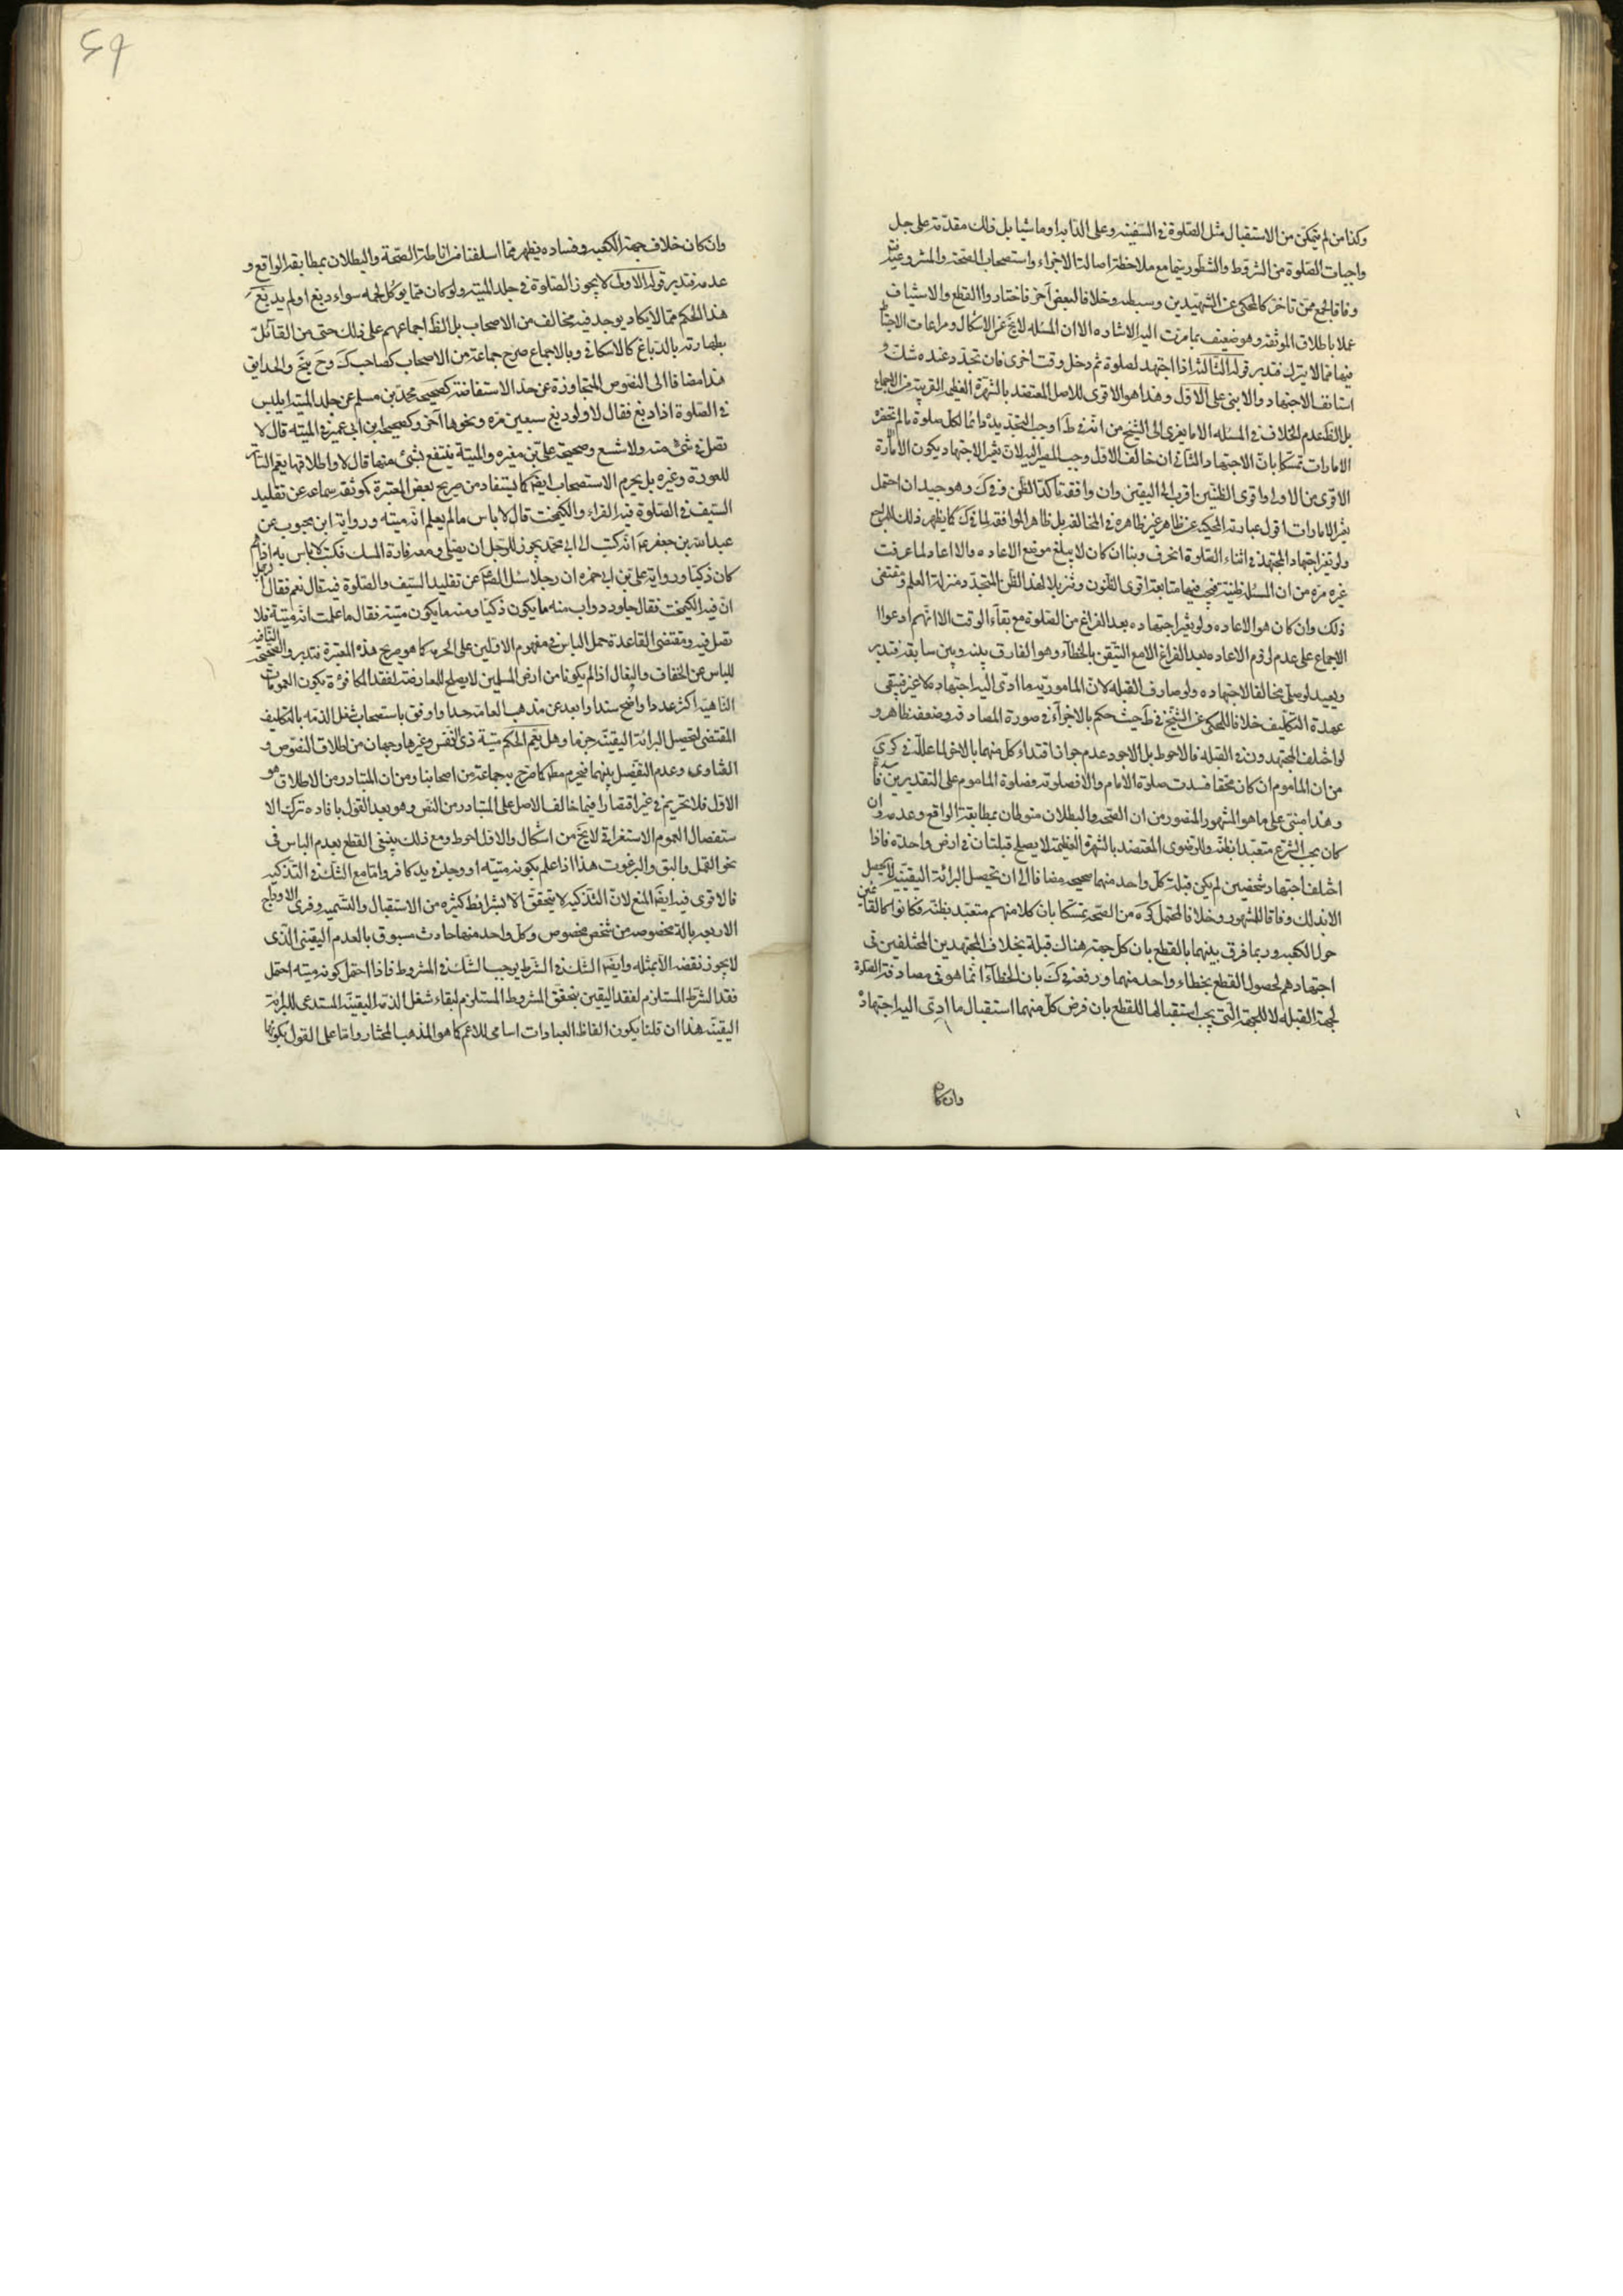 وكذا من لم يتمكن من الاستقبال مثل الصلوة فى السفينه وعلى الدابه او ماشيا بل ذلك مقدمة على جل
واجبات الصلوة من الشروط والشطور سيما مع ملاحظة اصالة الاجزاء واستصحاب الصحة والمشروعية
وفاقا لجمع ممن تاخر كالمحكى عن الشهيدين وسبطه وخلافا لبعض آخر فاختاروا القطع والاستيناف
عملا باطلاق الموثقه وهو ضعيف بما مرت اليه الاشاده الا ان المسئله لا يخ عن الاشكال ومراعات الاحتياط
فيها مما لا يترك فتدبر قوله الثالث اذا اجتهد لصلوة ثم دخل وقت اخرى فان تجدد عنده شك
استانف الاجتهاد والا بنى على الاول وهذا هو الاقوى للاصل المعتضد بالشهرة العظيمه القريبه من الاجماع
بل الظ عدم الخلاف فى المسئله الا ما يعزى الى الشيخ من انه فى ط اوجب التجديد دائما لكل صلوة ما لم تحضره
الامارات تمسكا بان الاجتهاد الثانى ان خالف الاول وجب المصير اليه لان تغير الاجتهاد يكون لامارة
الاقوى من الاولى واقوى الظنين اقرب الى اليقين وان وافقه تاكد الظن وفى ك وهو جيد ان احتمل
تغير الامارات اقول عبارته المحكيه عن ظاهر غير ظاهره فى المخالفه بل ظاهر الموافقه لما فى ك كما يظهر ذلك للمراجع
ولو تغير اجتهاد المجتهد فى اثناء الصلوة انحرف وبنا ان كان لا يبلغ موضع الاعاده والا اعاد لما عرفت
غيره مره من ان المسئله ظنيه فيجب فيها متابعة اقوى الظنون وتنزيلا لهذا الظن المتجدد منزلة العلم ومقتضى
ذلك وان كان هو الاعاده ولو تغير اجتهاده بعد الفراغ من الصلوة مع بقاء الوقت الا انهم ادعوا
الاجماع على عدم لزوم الاعاده بعد الفراغ الا مع التيقن بالخطاء وهو الفارق بينه وبين سابقه فتدبر
ويعيد لو صلى مخالفا لاجتهاده ولو صادف القبله لان المامور به ما ادى اليه اجتهاده لا غير فيبقى
عهدة التكليف خلافا للمحكى عن الشيخ فى ط حيث حكم بالاجزاء فى صورة المصادفه وضعفه ظاهر و
لو اختلف المجتهدون فى القبله فالاحوط بل الاجود عدم جواز اقتداء كل منهما بالاخر لما علله فى كرى
من ان الماموم ان كان محقا فسدت صلوة الامام والا فصلوته فصلوة الماموم على التقديرين
وهذا مبنى على ما هو المشهور المنصور من ان الصحه والبطلان منوطان بمطابقة الواقع وعدمه وان
كان بحسب الشرع متعبدا بظنه والرضوى المعتضد بالشهرة العظيمة لا يصلح قبلتان فى ارض واحده فاذا
اختلف اجتهاد شخصين لم يكن قبلة كل واحد منهما صحيحه مضافا الى ان تحصيل البرائة اليقينيه لا يحصل
الا بذلك وفاقا للمشهور وخلافا لمحتمل كره من الصحه تمسكا بان كلا منهم متعبد بظنه فكانوا كالقائمين
حول الكعبه وربما فرق بينهما بالقطع بان كل جهة هناك قبلة بخلاف المجتهدين المختلفين فى
اجتهادهم لحصول القطع بخطاء واحد منهما ورفعه فى ك بان الخطاء انما هو فى مصادفة الصلوة
لجهة القبله لا للجهة التى يجب استقبالها للقطع بان فرض كل منهما استقبال ما ادى اليه اجتهاده
وان كان
٤٩
وان كان خلاف جهة الكعبه وفساده يظهر مما اسلفنا من اناطة الصحة والبطلان بمطابقه الواقع و
عدمه فتدبر قوله الاولى لا يجوز الصلوة فى جلد الميته ولو كان مما يوكل لحمه سواء دبغ او لم يدبغ
هذا الحكم مما لا يكاد يوجد فيه مخالف من الاصحاب بل الظ اجماعهم على ذلك حتى من القائل
بطهارته بالدباغ كالاسكافى وبالاجماع صرح جماعة من الاصحاب كصاحب ك وح يخ والحدايق
هذا مضافا الى النصوص المتجاوزة عن حد الاستفاضة كصحيحه محمد بن مسلم عن جلد الميته ايلبس
فى الصلوة اذا دبغ فقال لا ولو دبغ سبعين مره ونحوها آخر وكصحيحه ابن ابى عمير فى الميته قال لا
تصل فى شئ منه ولا شسع وصحيحة على بن مغيره والميتة ينتفع بشئ منها قال لا واطلاقها يعم الساتر
للعورة وغيره بل يحرم الاستصحاب ايضا كما يستفاد من صريح بعض المعتبرة كموثقه سماعه عن تقليد
السيف فى الصلوة فيه الفراء والكيمخت قال لا باس ما لم يعلم انه ميته ورواية ابن محبوب عن
عبد الله بن جعفر انه كتب الى ابى محمد يجوز للرجل ان يصلى ومعه فارة المسك فكتب لا باس به اذا
كان ذكيا ورواية على بن ابى حمزه ان رجلا سئل الصادق عن تقليد السيف والصلوة فيه قال نعم فقال الرجل
ان فيه الكيمخت فقال جلود دواب منه ما يكون ذكيا ومنه ما يكون ميته فقال ما علمت انه ميتة فلا
تصل فيه ومقتضى القاعدة حمل الباس فى مفهوم الاولين على الحرمه كما هو صريح هذه المعتبرة فتدبر والصحيحه النافيه
للباس عن الخفاف والبغال اذا لم يكونا من ارض المسلمين لا يصلح للمعارضه لفقد المكافئة بكون العمومات
الناهيه اكثر عددا واضح سندا وابعد عن مذهب العامة جدا واوفق باستصحاب شغل الذمه بالتكليف
المقتضى لتحصيل البرائة اليقينيه جزما وهل يعم الحكم ميتة ذى النفس وغيرها وجهان من اطلاق النصوص و
الفتاوى وعدم التفصيل بينهما فيحرم مطلقا كما صرح به جماعة من اصحابنا ومن ان المتبادر من الاطلاق هو
الاول فلا تحريم فى غير اقتصارا فيما خالف الاصل على المتبادر من النص وهو بعد القول بافاده ترك الا
ستفصال العموم الاستغراقى لا يخ من اشكال والاول احوط ومع ذلك ينبغى القطع بعدم الباس فى
نحو القمل والبق والبرغوث هذا اذا علم بكونه ميته او وجد فى يد كافر واما مع الشك فى التذكيه
فالاقوى فيه ايضا المنع لان التذكيه لا يتحقق الا بشرائط كثيره من الاستقبال والتسميه وفرى الاوداج
الاربعه بالة مخصوصه من شخص مخصوص وكل واحد منها حادث مسبوق بالعدم اليقينى الذى
لا يجوز نقضه الا بمثله وايضا الشك فى الشرط يوجب الشك فى المشروط فاذا احتمل كونه ميته احتمل
فقد الشرط المستلزم لفقد اليقين بتحقق المشروط المستلزم لبقاء شغل الذمه اليقينيه المستدعى للبرائة
اليقينيه هذا ان قلنا بكون الفاظ العبادات اسامى للاعم كما هو المذهب المختار واما على القول بكونها